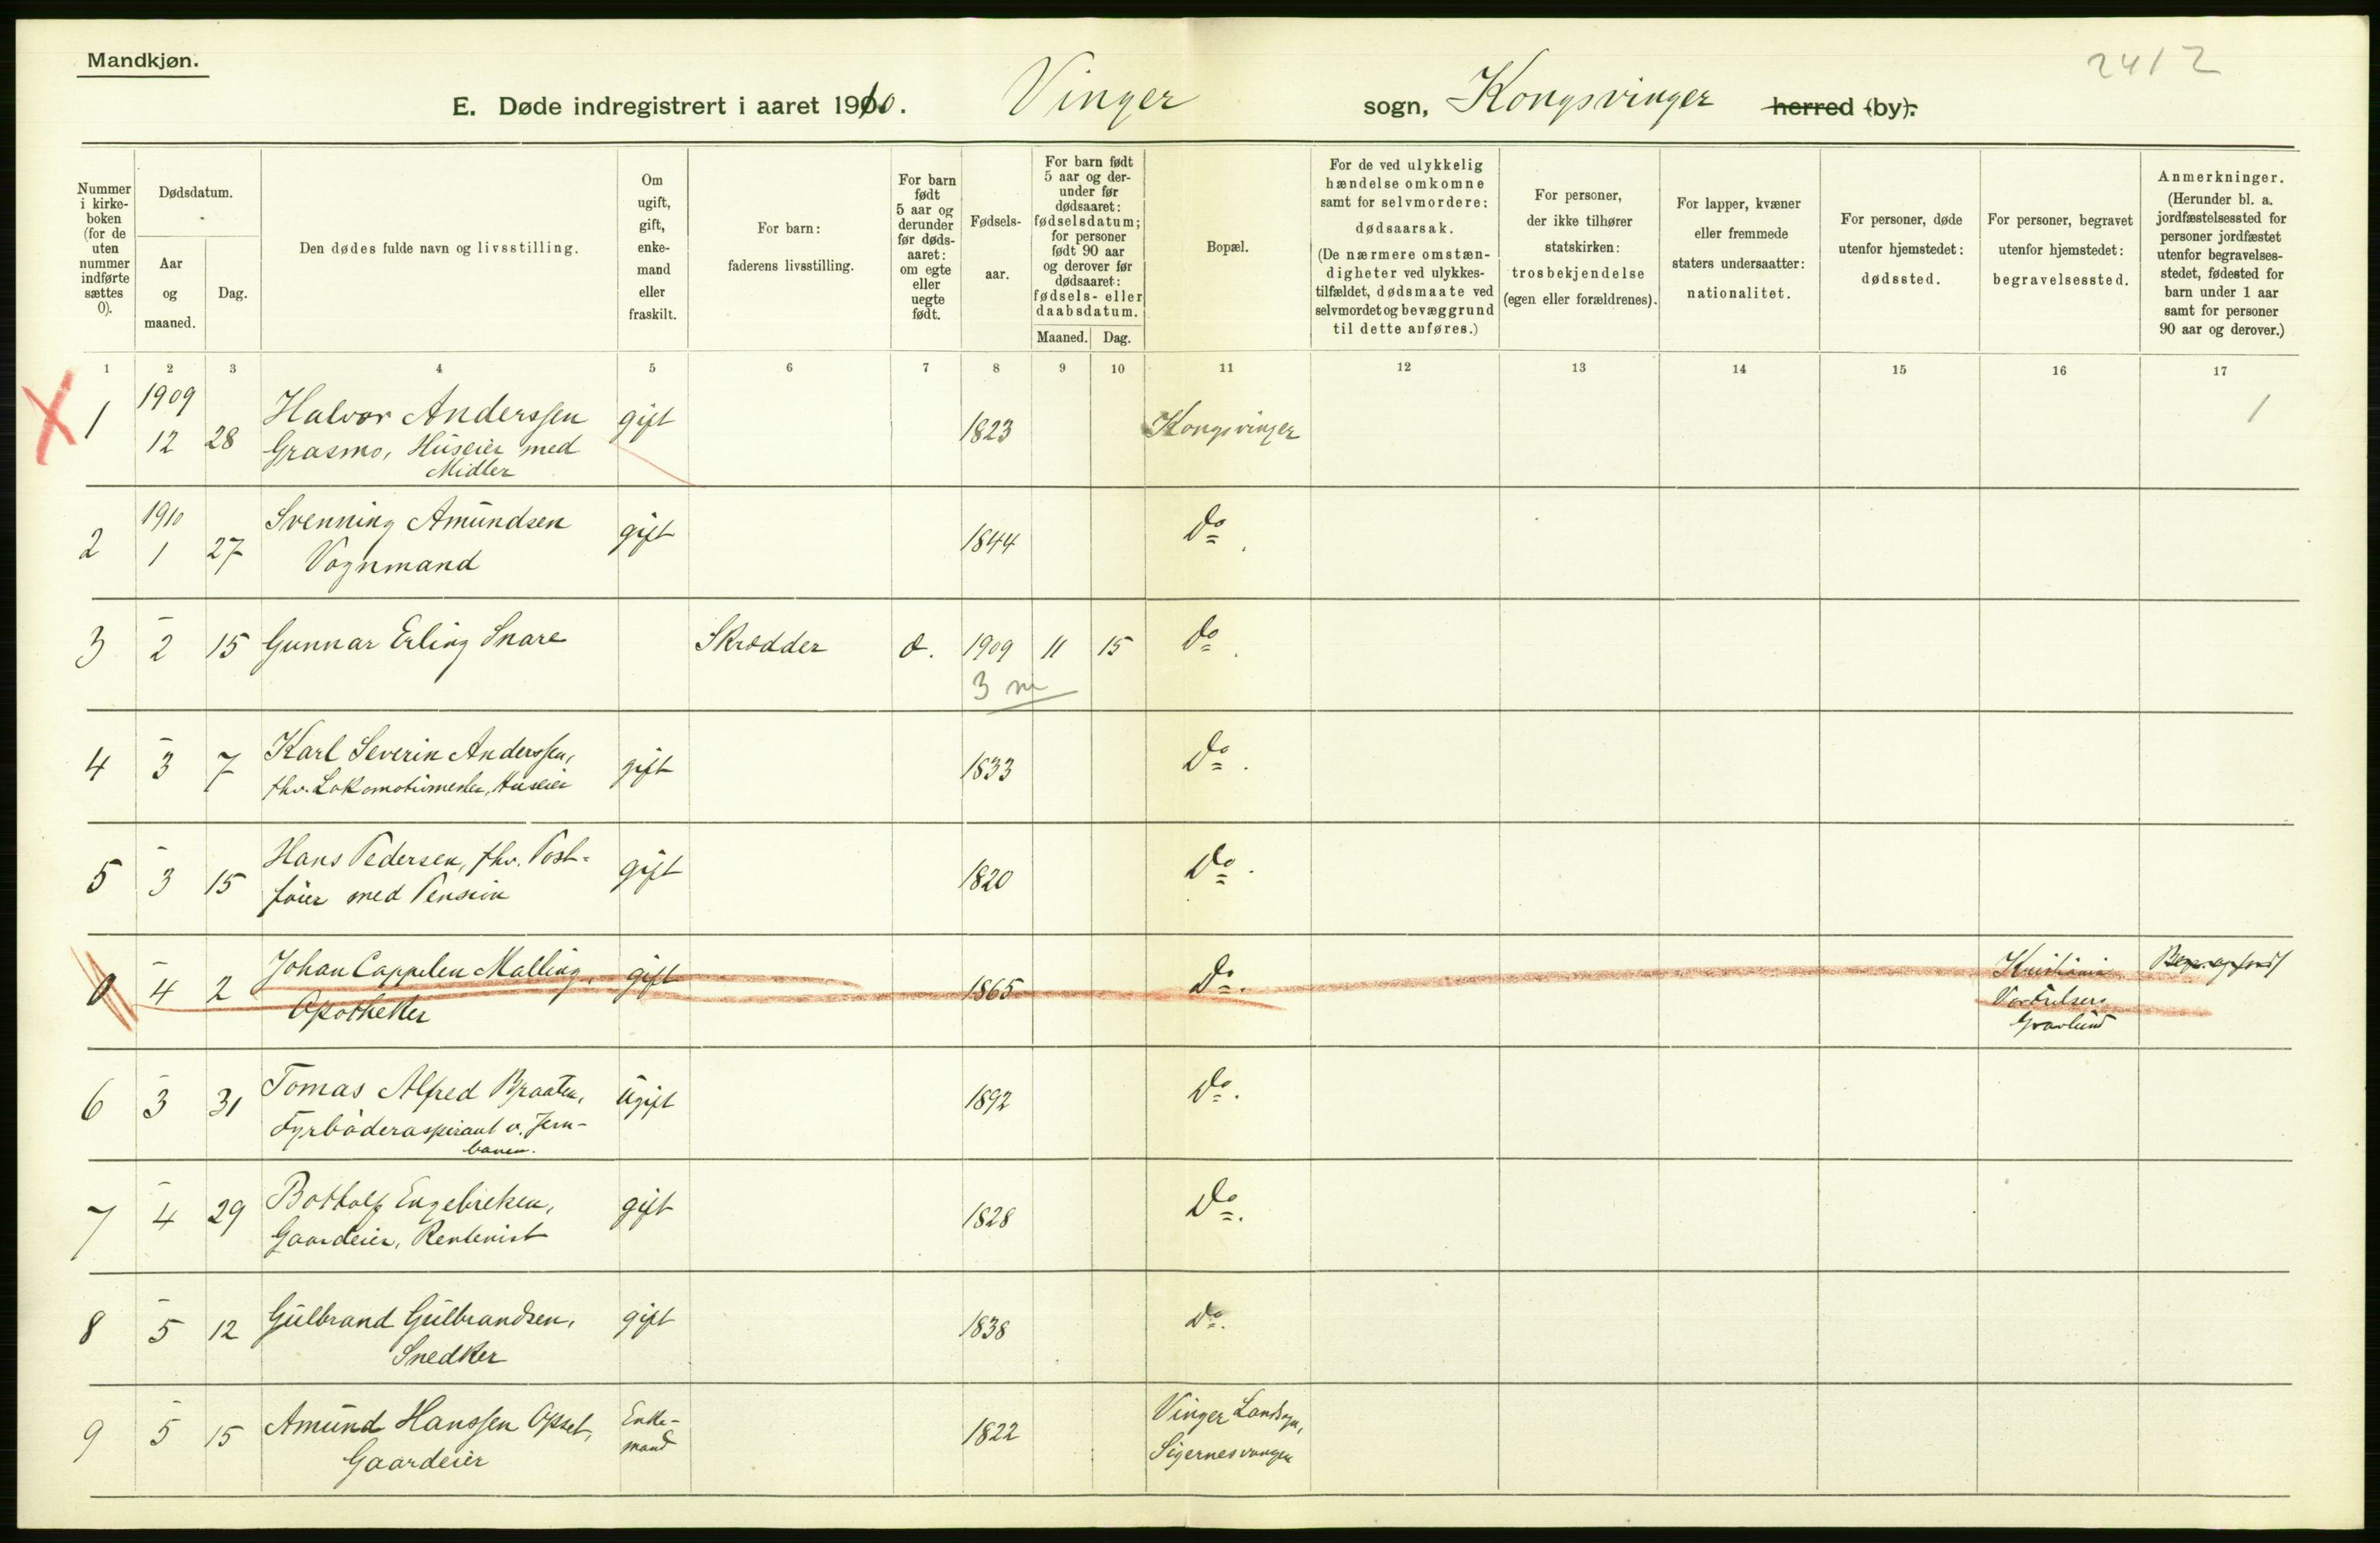 Mandkjøn.
2412
E. Døde indregistrert i aaret 1910. Vinger sogn, Kongsvinger herred (by).
Nummer i kirke-boken (for de uten nummer indførte sættes 0).
Dødsdatum.
Aar og maaned.
Dag.
Den dødes fulde navn og livsstilling.
Om ugift, gift, enke-mand eller fraskilt.
For barn: faderens livsstilling.
For barn født 5 aar og derunder før døds-aaret: om egte eller uegte født.
Fødsels-aar.
For barn født 5 aar og der-under før dødsaaret: fødselsdatum; for personer født 90 aar og derover før dødsaaret: fødsels- eller daabsdatum.
Maaned. Dag.
Bopæl.
For de ved ulykkelig hændelse omkomne samt for selvmordere: dødsaarsak. (De nærmere omstæn-digheter ved ulykkes-tilfældet, dødsmaate ved selvmordet og bevæggrund til dette anføres.)
For personer, der ikke tilhører statskirken: trosbekjendelse (egen eller forældrenes).
For lapper, kvæner eller fremmede staters undersaatter: nationalitet.
For personer, døde utenfor hjemstedet: dødssted.
For personer, begravet utenfor hjemstedet: begravelsessted.
Anmerkninger. (Herunder bl. a. jordfæstelsessted for personer jordfæstet utenfor begravelses-stedet, fødested for barn under 1 aar samt for personer 90 aar og derover.)
1 2 3 4 5 6 7 8 9 10 11 12 13 14 15 16 17
1909
1 12 28 Halvor Anderssen gift 1823 Kongsvinger 1
Grasmo, Huseier med
Midler
1910
2 1 27 Svenning Amundsen gift 1844 Do
Vognmand
3 2 15 Gunnar Erling Snare Skrædder 1909 11 15 Do
3 m
4 3 7 Karl Severin Anderssen, gift 1833 Do
fhv. Lokomotivmester, Huseier
5 3 15 Hans Pedersen, fhv. Post- gift 1820 Do
fører med Pension
0 4 2 Johan Cappelen Malling, gift 1865 Do. Kristiania
Apotheker Vor Frelsers
Gravlund
6 3 31 Tomas Alfred Braaten, ugift 1892 Do.
Fyrbøderaspirant v. Jern-
banen.
7 4 29 Bottolf Engebretsen, gift 1828 Do.
Gaardeier, Rentenist
8 5 12 Gulbrand Gulbrandsen, gift 1838 Do.
Snedker
9 5 15 Amund Hanssen Opset, Enke-mand 1822 Vinger Landsogn,
Gaardeier Sigernesvangen